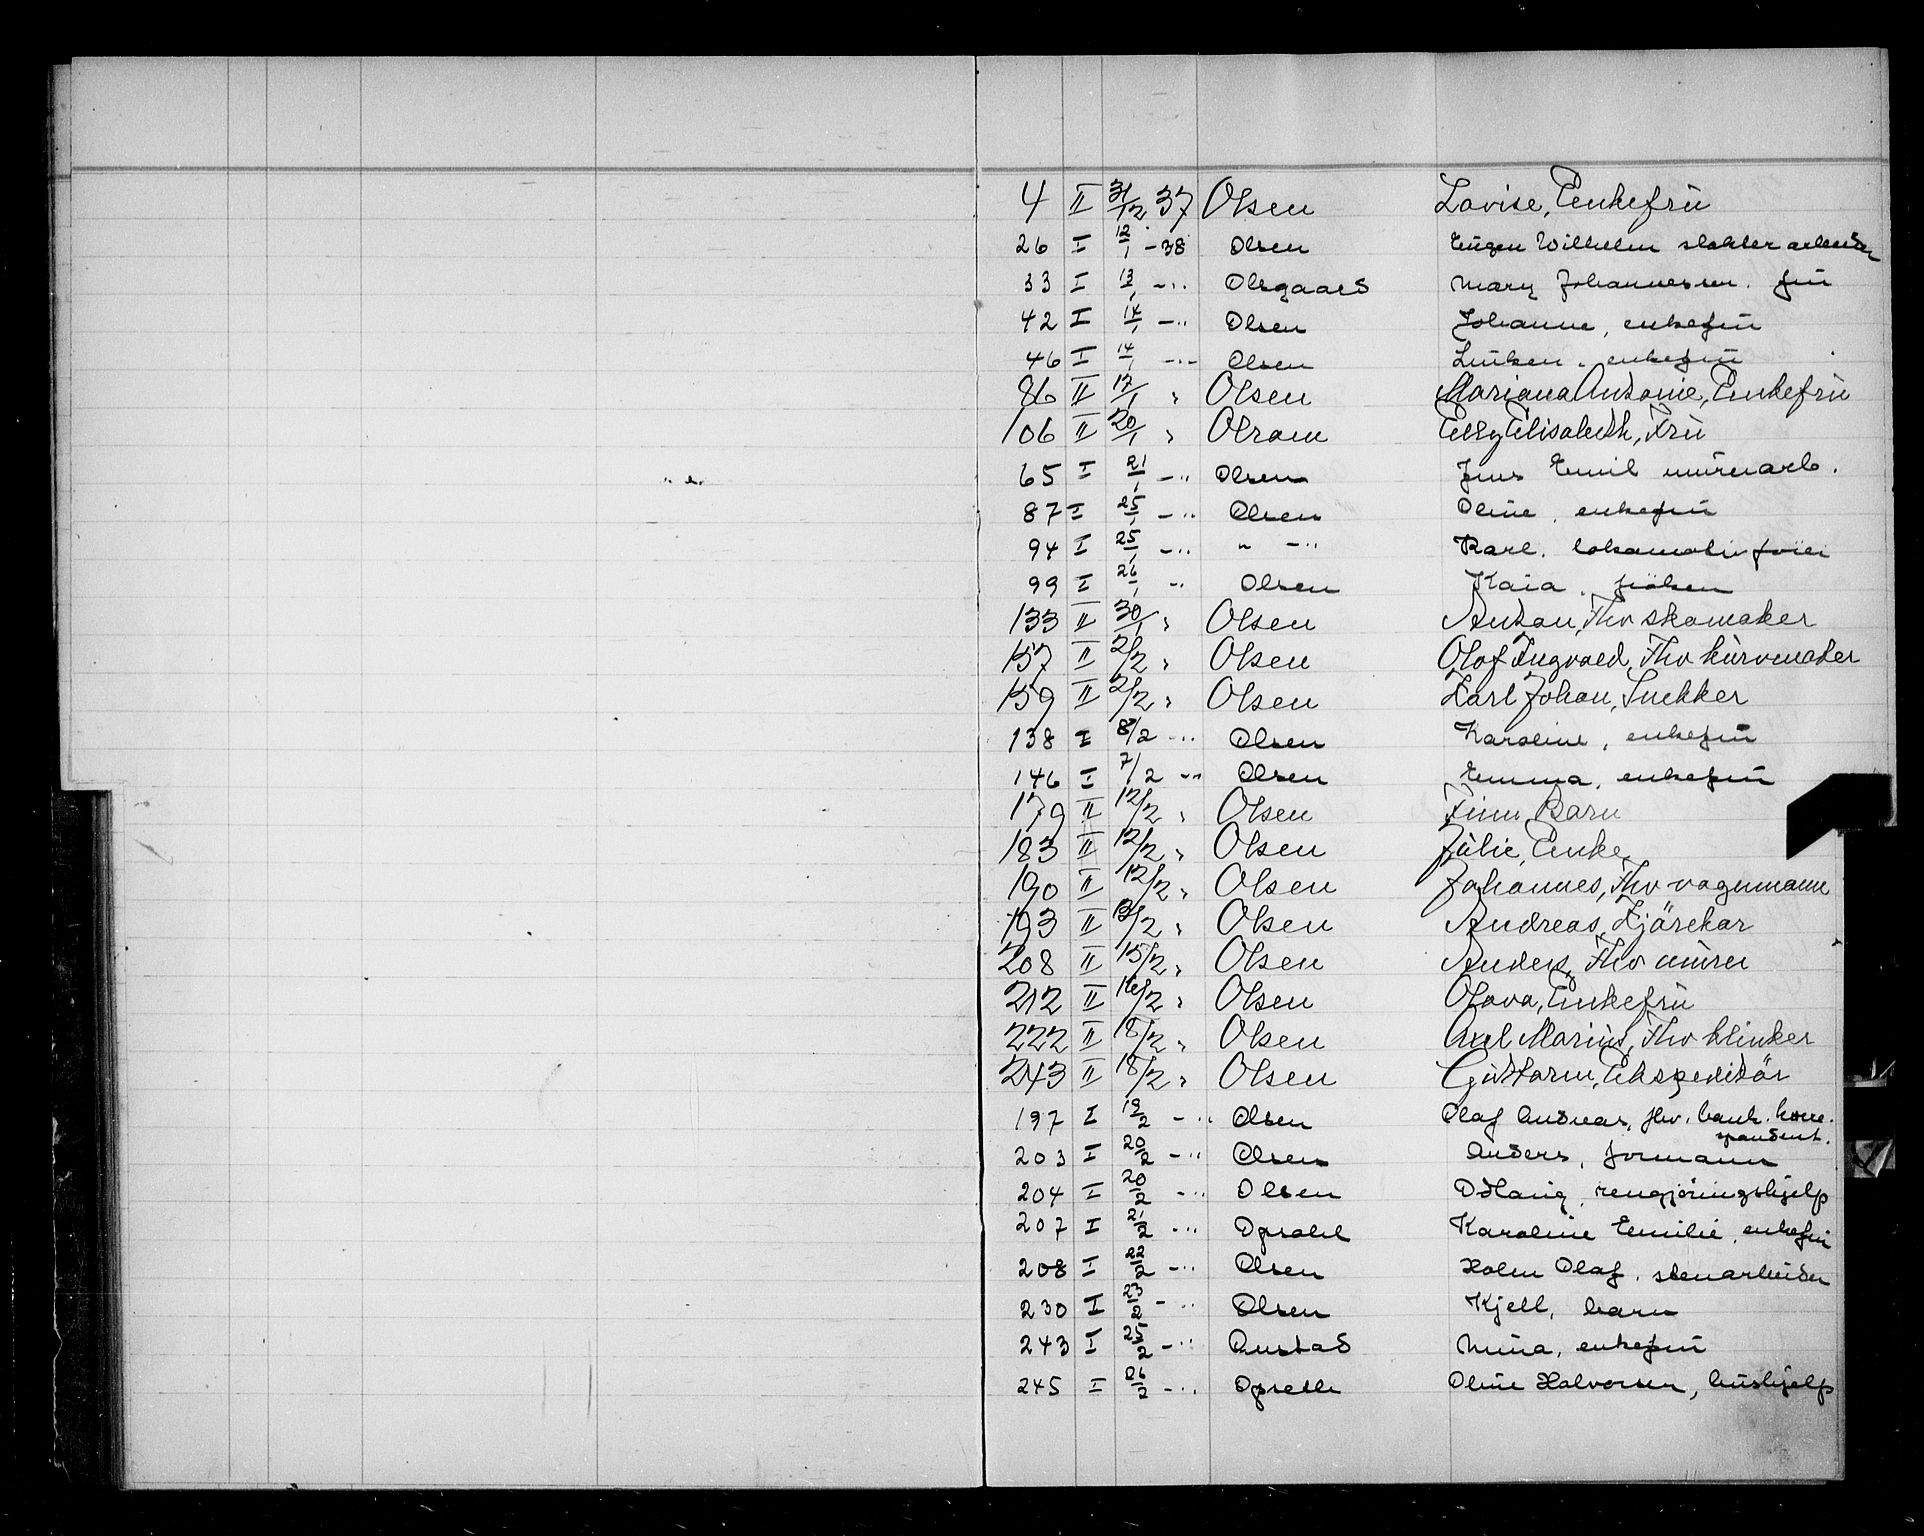 4 II 31/12 37 Olsen Lovise, Enkefrü
26 I 12/1 -38 Olsen Eugen Wilhelm slakterarbeider
33 I 13/1 -"- Olsgaard Mary Johannessen. frü
42 I 14/1 -"- Olsen Johanne, enkefrü
46 I 14/1 -"- Olsen enkefrü
86 II 17/1 " Olsen Mariana Antonie, Enkefrü
106 II 20/1 " Olram Elly Elisabeth, Frü
65 I 21/1 -"- Olsen Jens Emil mürerarb.
87 I 25/1 -"- Olsen Oline, enkefrü
94 I 25/1 -"- " -"- Karl. lokomotivfører
99 I 26/1 " Olsen Kaia, frøken
133 II 30/1 " Olsen Anton, Fhv skomaker
157 II 2/2 " Olsen Olaf Ingvald, Fhv kürvmaker
159 II 2/2 " Olsen Karl Johan, Snekker
138 I 8/2 -"- Olsen Karoline, enkefrü
146 I 7/2 -"- Olsen Emma, enkefrü
179 II 12/2 " Olsen Finn Barn
183 II 12/2 " Olsen Jülie, Enke
190 II 12/2 " Olsen Johannes, Fhv vognmann
193 II 13/2 " Olsen Andreas, Kjörekar
208 II 15/2 " Olsen Anders, Fhv mürer
212 II 16/2 " Olsen Olava, Enkefrü
222 II 18/2 " Olsen Axel Marius, Fhv klinker
243 II 18/2 " Olsen Guttorm, Ekspeditör
197 I 19/2 -"- Olsen Olaf Andreas, fhv. bank. korre-
spondent.
203 I 20/2 -"- Olsen Anders, formann
204 I 20/2 -"- Olsen Othanie, rengjöringshjelp
207 I 21/2 -"- Opsahl Karoline Emilie, enkefrü
208 I 22/2 -"- Olsen Holm Olaf, stenarbeider
230 I 23/2 -"- Olsen Kjell, barn
243 I 25/2 -"- Onstad Mina, enkefrü
245 I 26/2 -"- Opseth Oline Halvorsen, hüshjelp